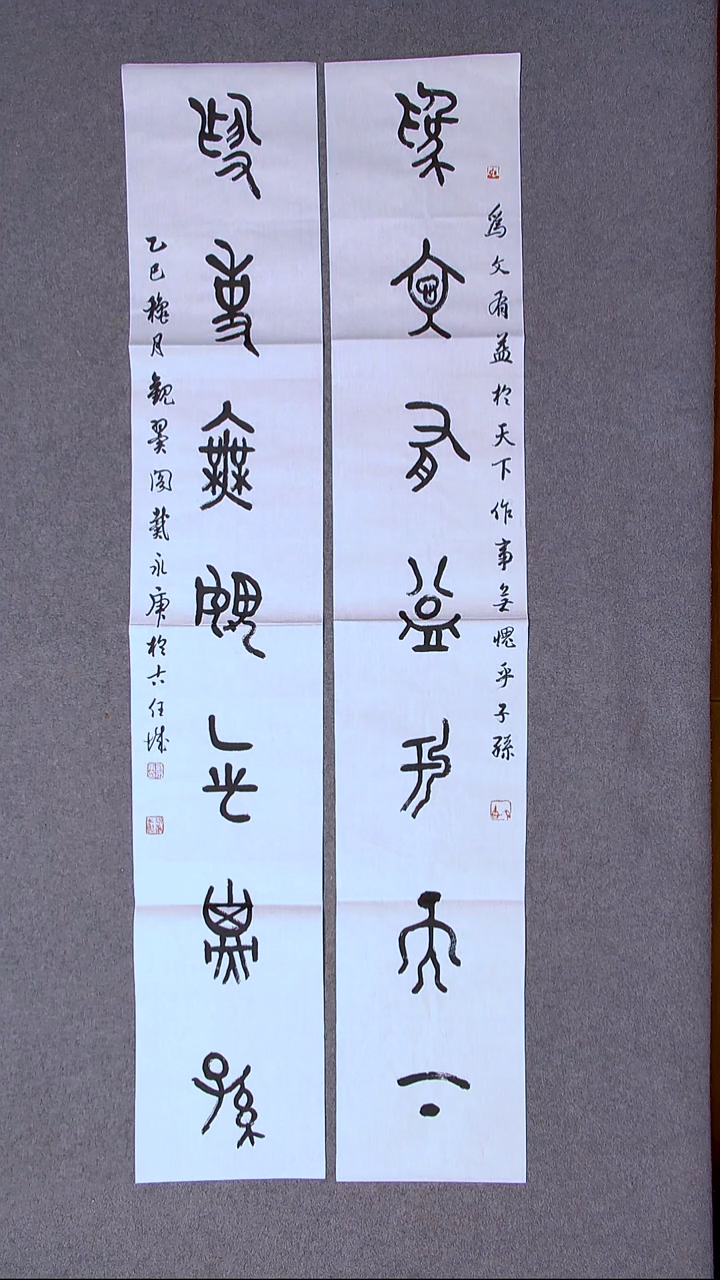 為文有益於天下
作事無愧乎子孫
為文有益於天下作事無愧乎子孫
乙巳穐月觀翼閣戴永庚於古任城